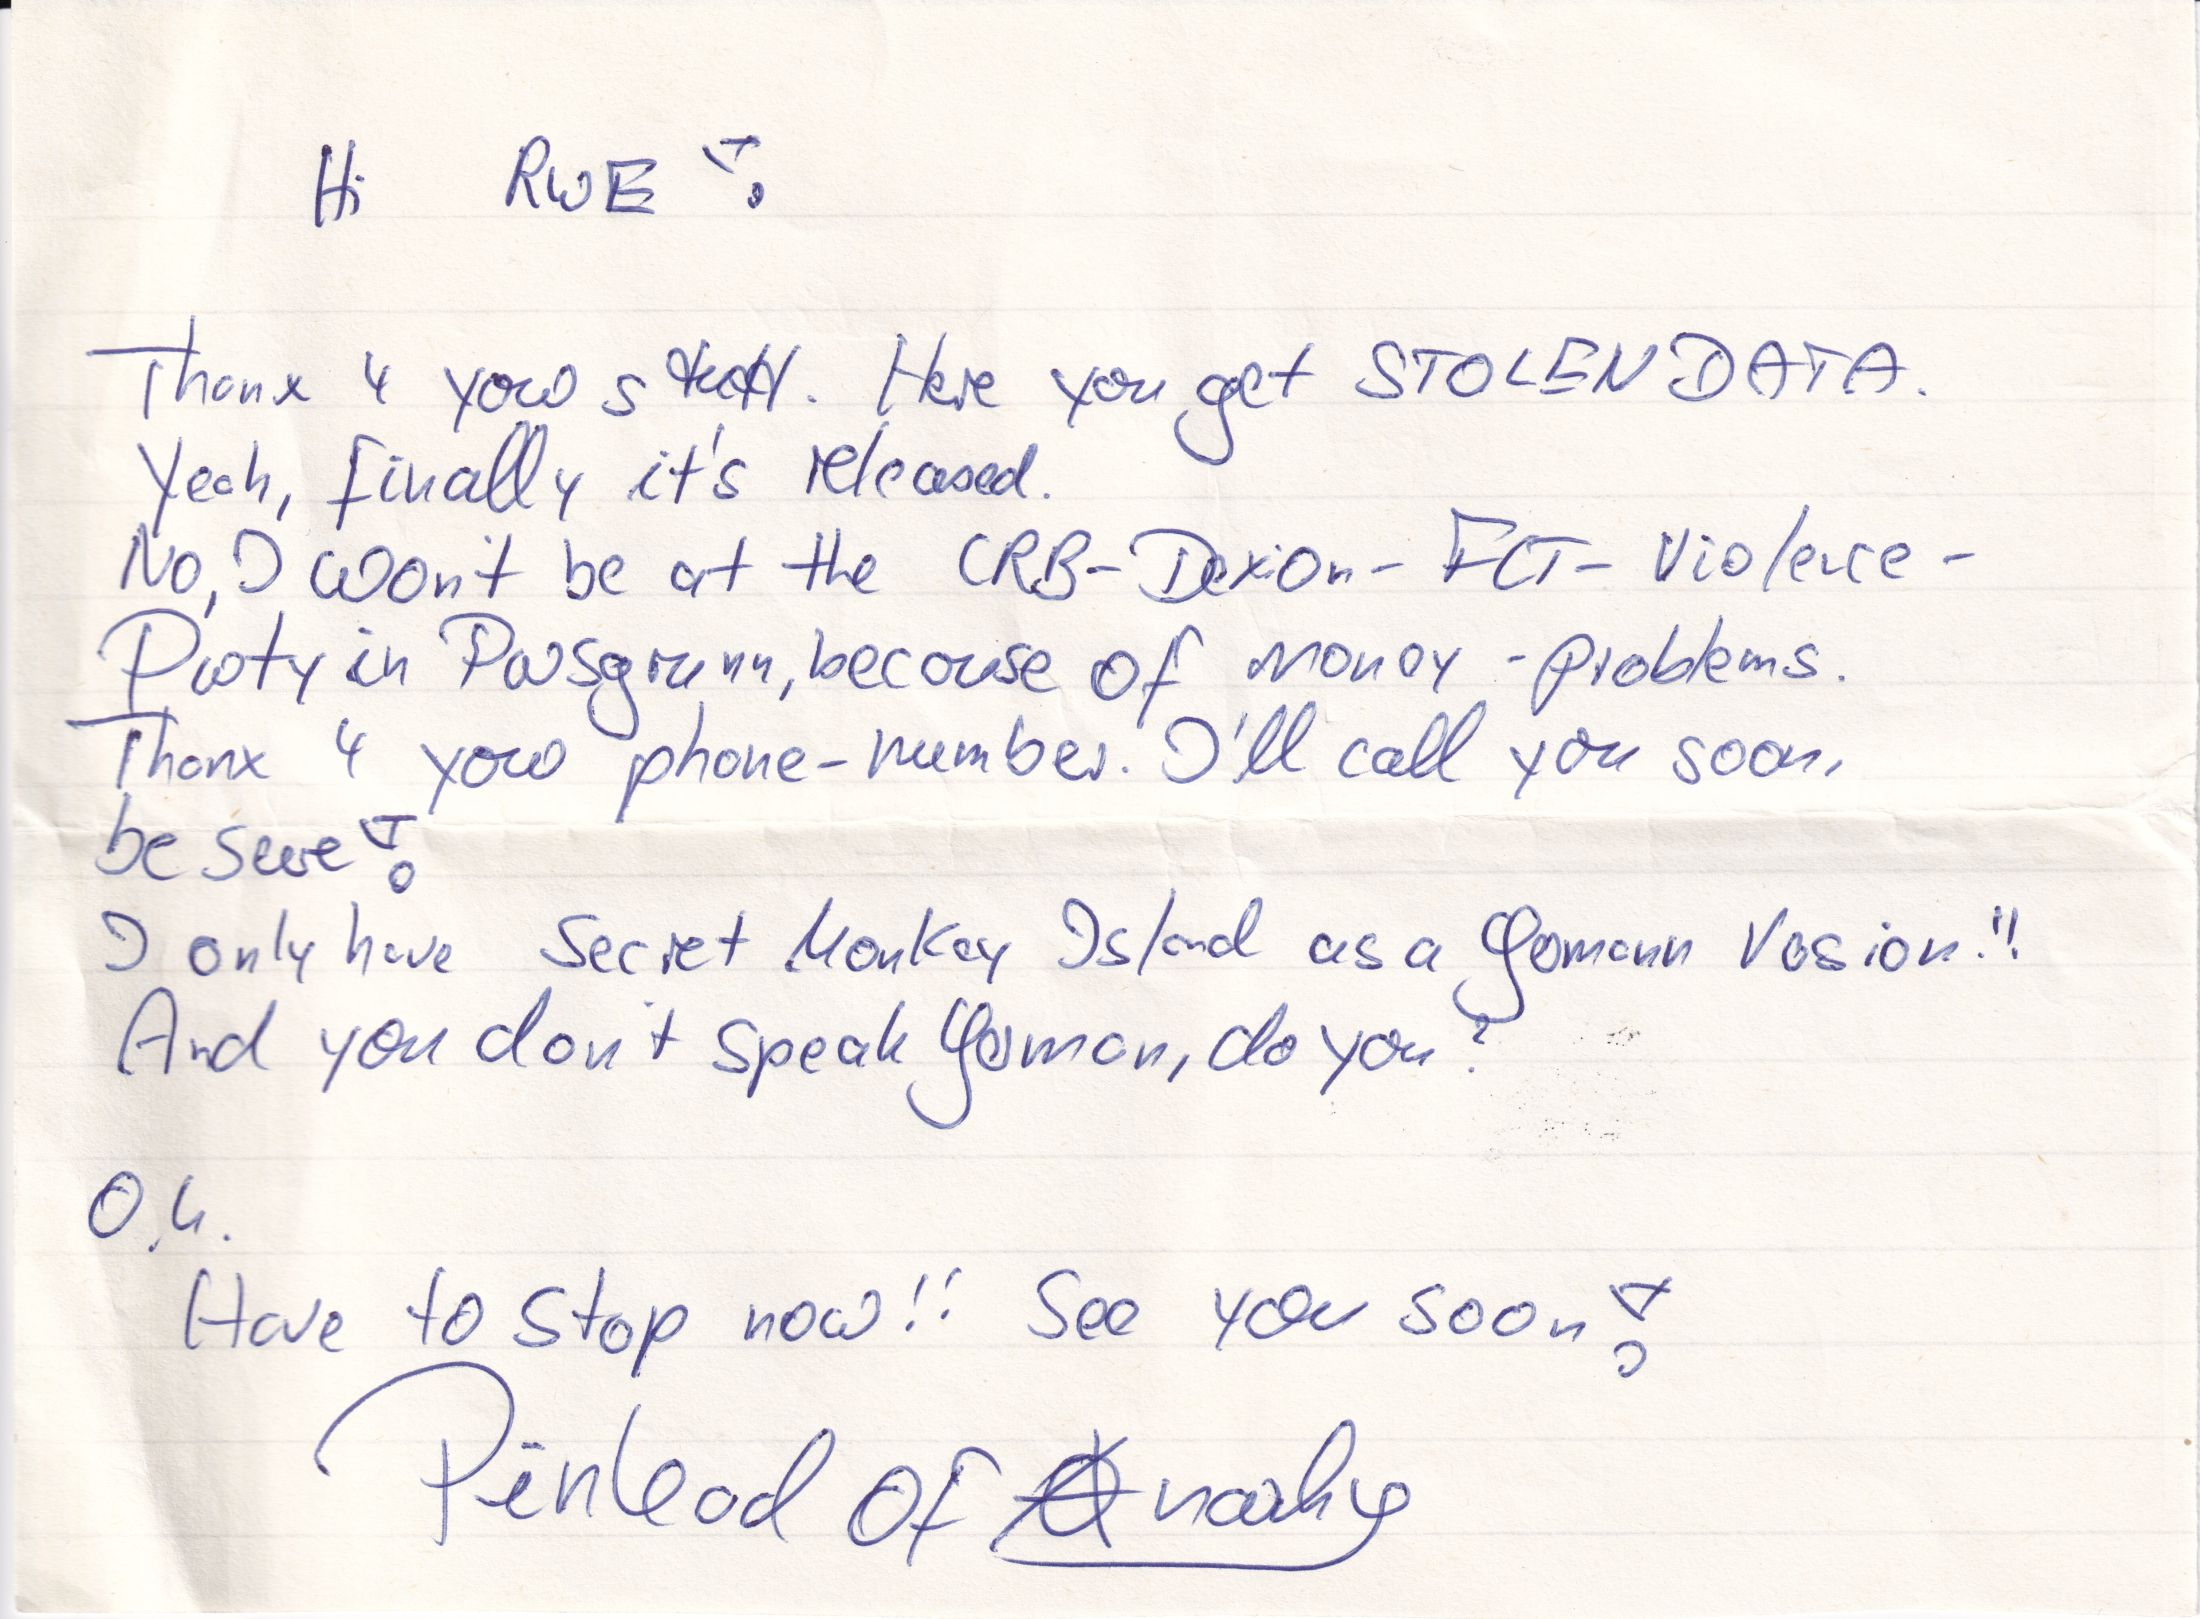 Hi RWE!
Thanx 4 your stuff. Here you get STOLEN DATA.
Yeah, finally it's released.
No, I won't be at the CRB-Dexion-FCT-Violence-
Party in Porsgrunn, because of money-problems.
Thanx 4 your phone-number. I'll call you soon,
be sure!
I only have Secret Monkey Island as a Germann Version!!
And you don't speak German, do you?
O.k.
Have to stop now!! See you soon!
Pinhead of Anarchy